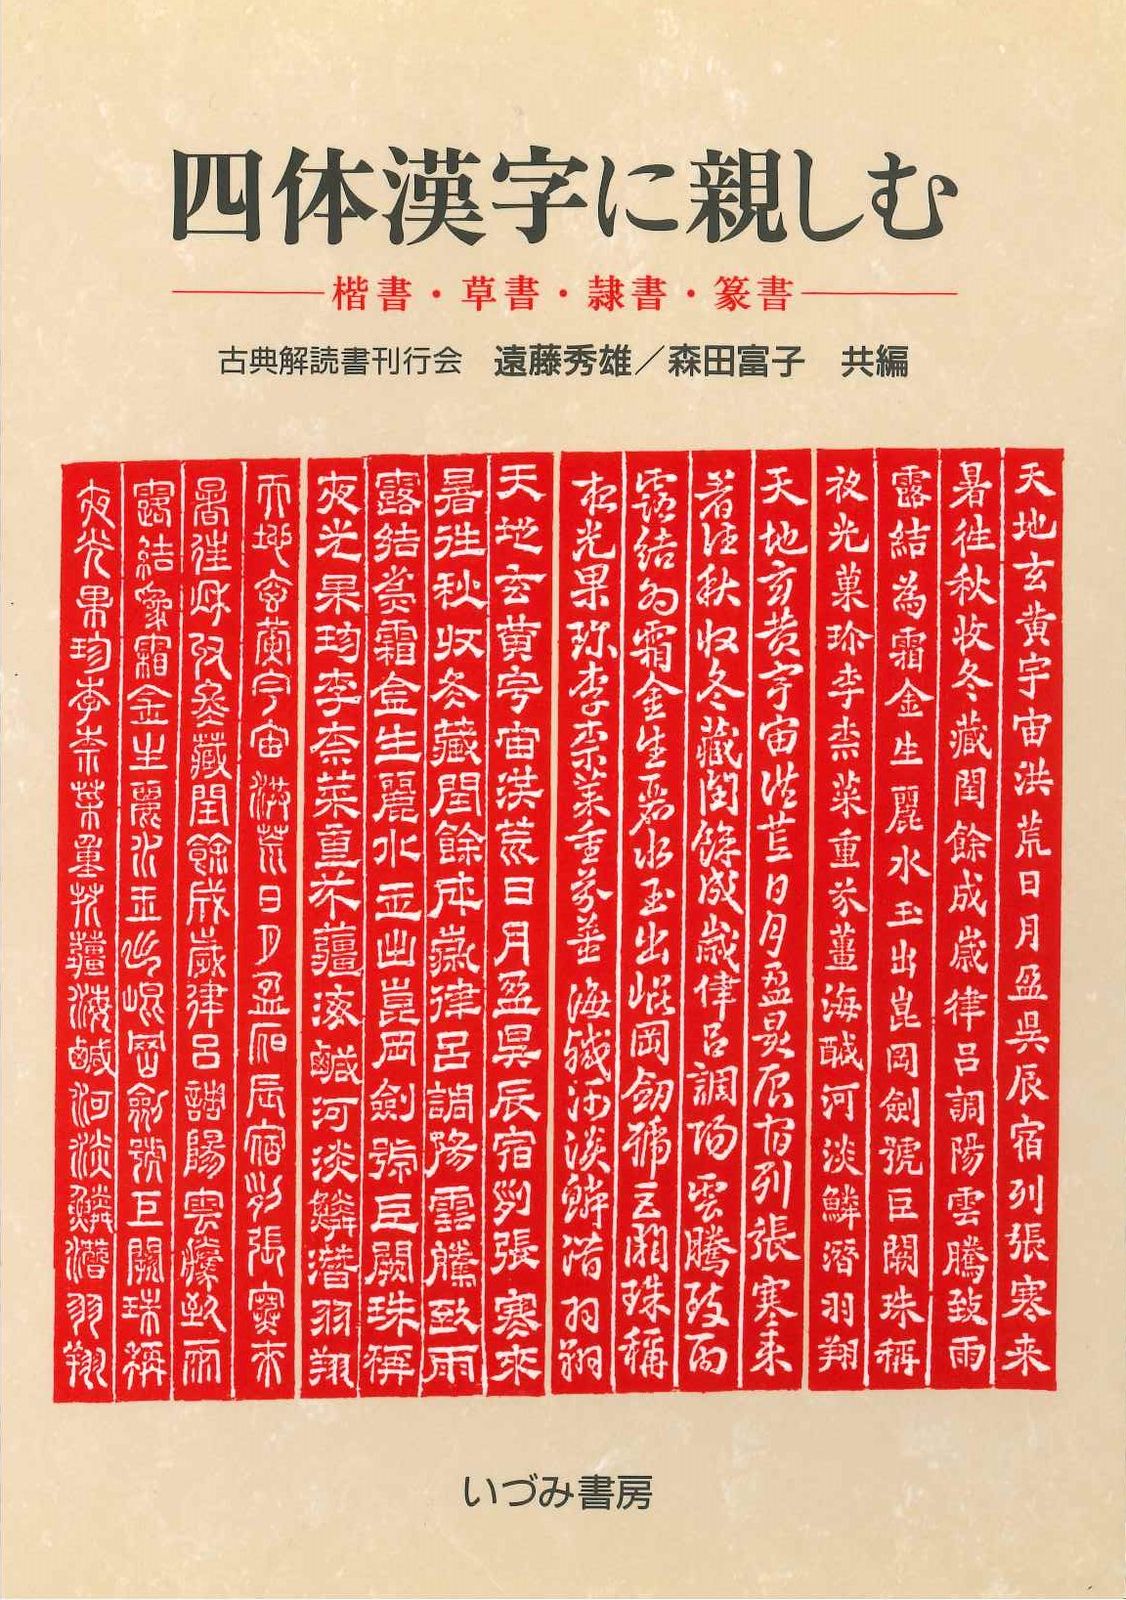 四体漢字に親しむ
楷書・草書・隷書・篆書
古典解読書刊行会　遠藤秀雄／森田富子　共編
天地玄黄宇宙洪荒日月盈昃辰宿列張寒来
暑往秋收冬藏閏餘成歳律呂調陽雲騰致雨
露結為霜金生麗水玉出崑岡劍號巨闕珠稱
夜光菓珍李柰菜重芥薑海鹹河淡鱗潜羽翔
天地玄黄宇宙洪荒日月盈昃辰宿列張寒来
暑往秋収冬藏閏餘成歳律呂調陽雲騰致雨
露結為霜金生麗水玉出崐岡劍號巨闕珠稱
夜光果珍李柰菜重芥薑海鹹河淡鱗潜羽翔
天地玄黄宇宙洪荒日月盈昃辰宿列張寒來
暑往秋収冬藏閏餘成歳律呂調陽雲騰致雨
露結為霜金生麗水玉出崑岡劍號巨闕珠稱
夜光果珍李柰菜重芥薑海鹹河淡鱗潜羽翔
天地玄黄宇宙洪荒日月盈昃辰宿列張寒来
暑往秋収冬藏閏餘成歳律呂調陽雲騰致雨
露結為霜金生麗水玉出崐岡劍號巨闕珠稱
夜光果珍李柰菜重芥薑海鹹河淡鱗潜羽翔
いづみ書房